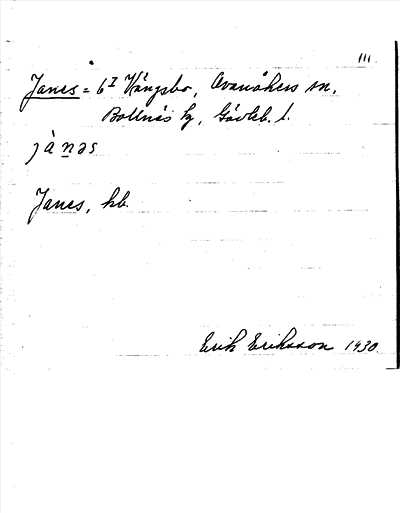 III.
Janes = 6I Kångsbo, Ovanåkers sn,
Bollnäs tg, Gävleb. l.
jànəs
Janes, kb.
Erik Eriksson 1930